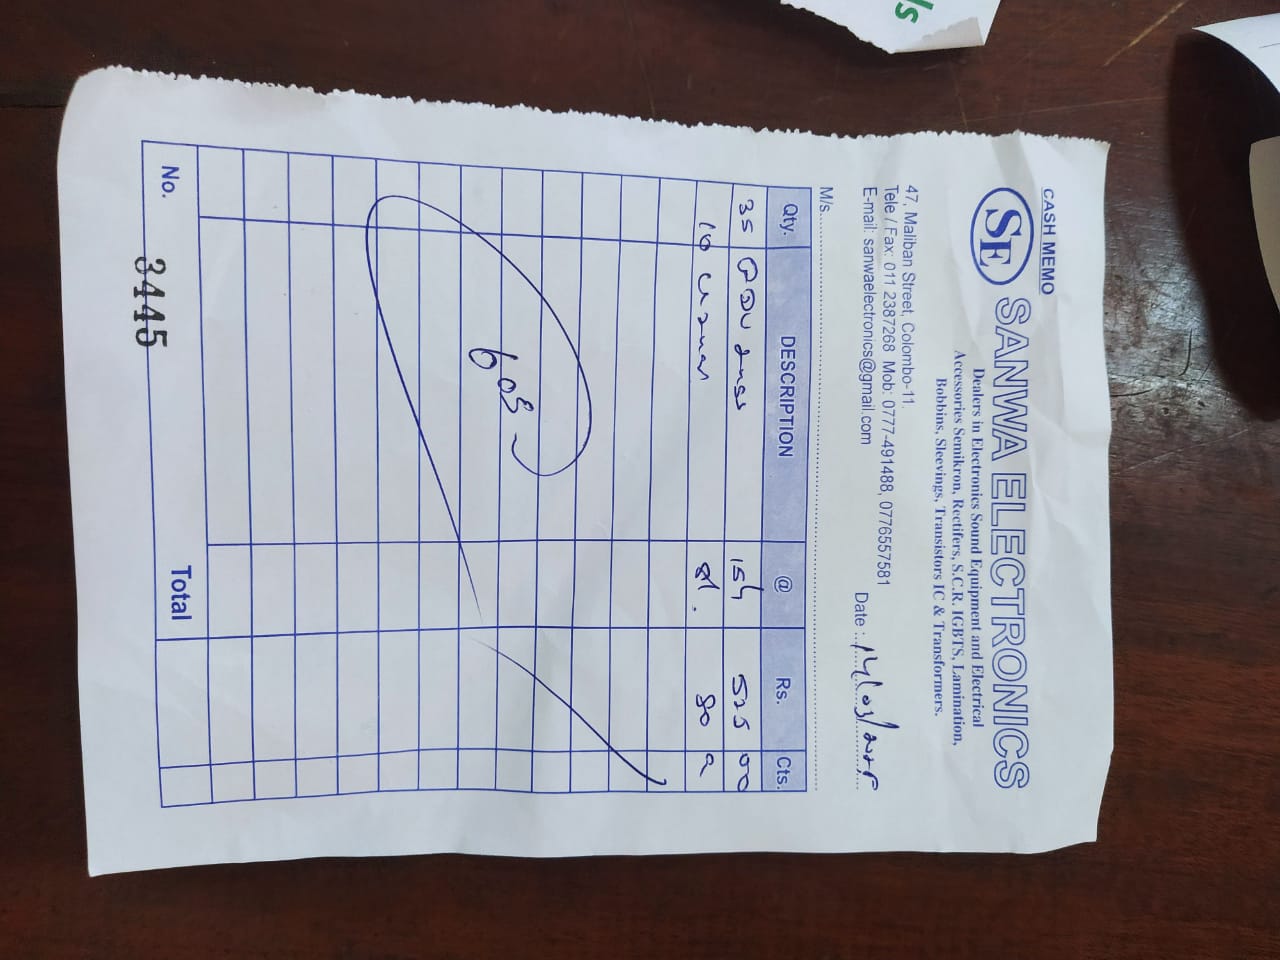 CASH MEMO
SE SANWA ELECTRONICS
Dealers in Electronics Sound Equipment and Electrical
Accessories Semikron, Rectifers, S.C.R. IGBTS, Lamination,
Bobbins, Sleevings, Transistors IC & Transformers.
47, Maliban Street, Colombo-11.
Tele / Fax: 011 2387268 Mob: 0777-491488, 0776557581
E-mail: sanwaelectronics@gmail.com
Date :
M/s.
Qty. DESCRIPTION @ Rs. Cts.
35 15/- 525 00
10 8/- 80
605
No. 3445 Total